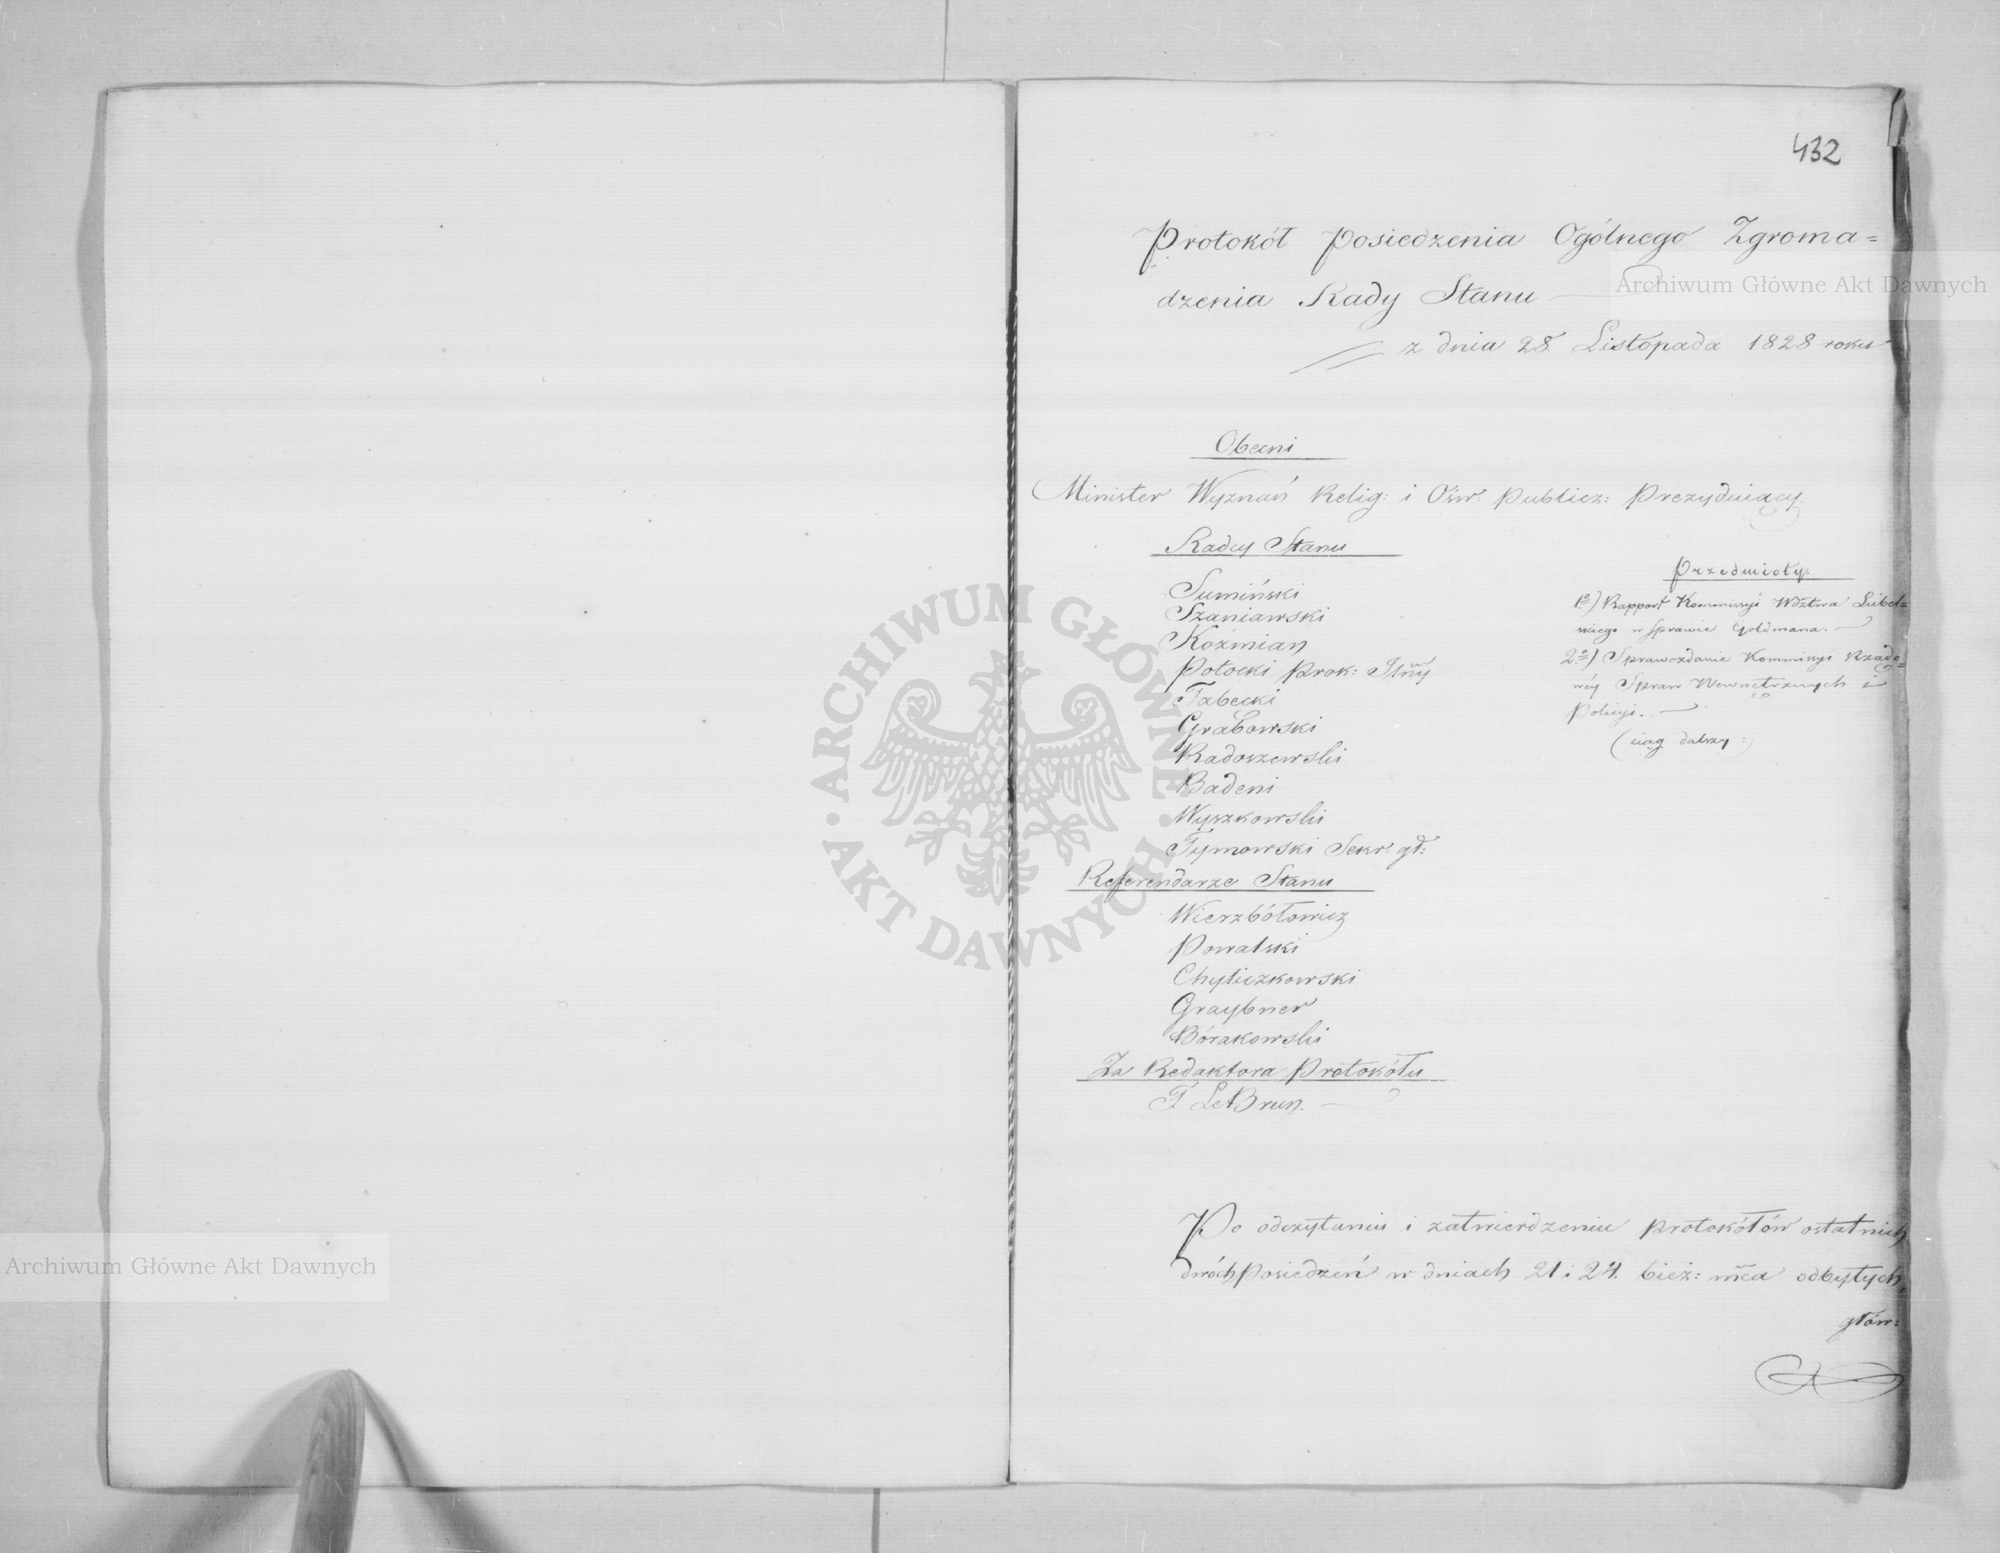 432
Protokół Posiedzenia Ogólnego Zgroma=
dzenia Rady Stanu
z dnia 28 Listopada 1828 roku
Obecni
Minister Wyznań Relig: i Ośw: Publicz: Prezydujący.
Radcy Stanu
Sumiński
Szaniawski
Koźmian
Potocki Prok: Jlny
Tabęcki
Grabowski
Radoszewski
Badeni
Wyszkowski
Tymowski Sekr: gł:
Referendarze Stanu
Wierzbółowicz
Powalski
Chyliczkowski
Graybner
Bórakowski
Za Redaktora Protokółu
F LeBrun.
Przedmioty.
1º) Rapport Kommissyi Wdztwa Lubel=
skiego w Sprawie Goldmana.
2º) Sprawozdanie Kommissyi Rządo=
wéy Spraw Wewnętrznych i
Policyi.
(ciąg dalszy:)
Po odczytaniu i zatwierdzeniu protokółów ostatnich
dwóch Posiedzeń w dniach 21 i 24. bież: mca odbytych,
głów:
Archiwum Główne Akt Dawnych
Archiwum Główne Akt Dawnych
ARCHIWUM GŁÓWNE
AKT DAWNYCH